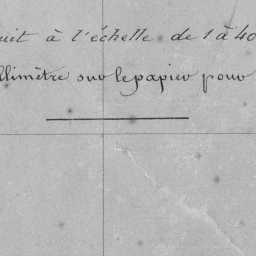 uit à l'échelle de 1 à 40
llimètre sur le papier pour